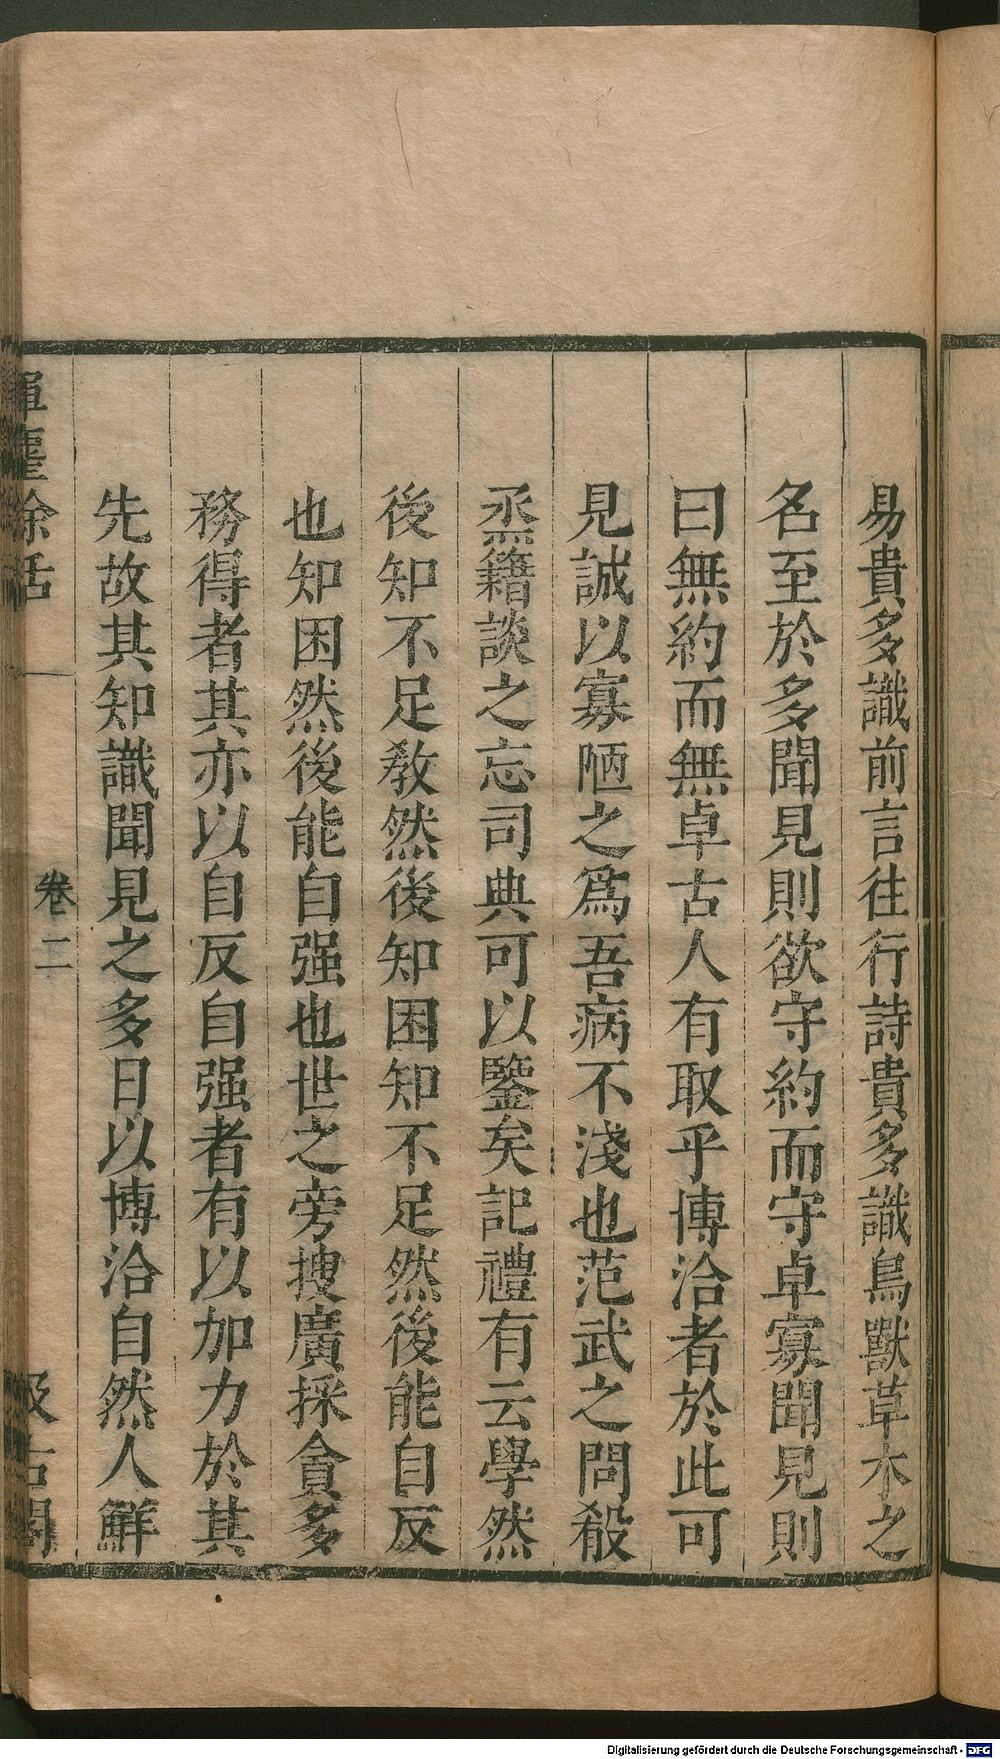 易貴多識前言往行詩貴多識鳥獸草木之
名至於多聞見則欲守約而守卓寡聞見則
曰無約而無卓古人有取乎博洽者於此可
見誠以寡陋之爲吾病不淺也范武之問殽
烝籍談之忘司典可以鑒矣記禮有云學然
後知不足敎然後知困知不足然後能自反
也知困然後能自强也世之旁搜廣採貪多
務得者其亦以自反自强者有以加力於其
先故其知識聞見之多日以博洽自然人鮮
揮麈餘話
卷二
汲古閣
Digitalisierung gefördert durch die Deutsche Forschungsgemeinschaft - DFG